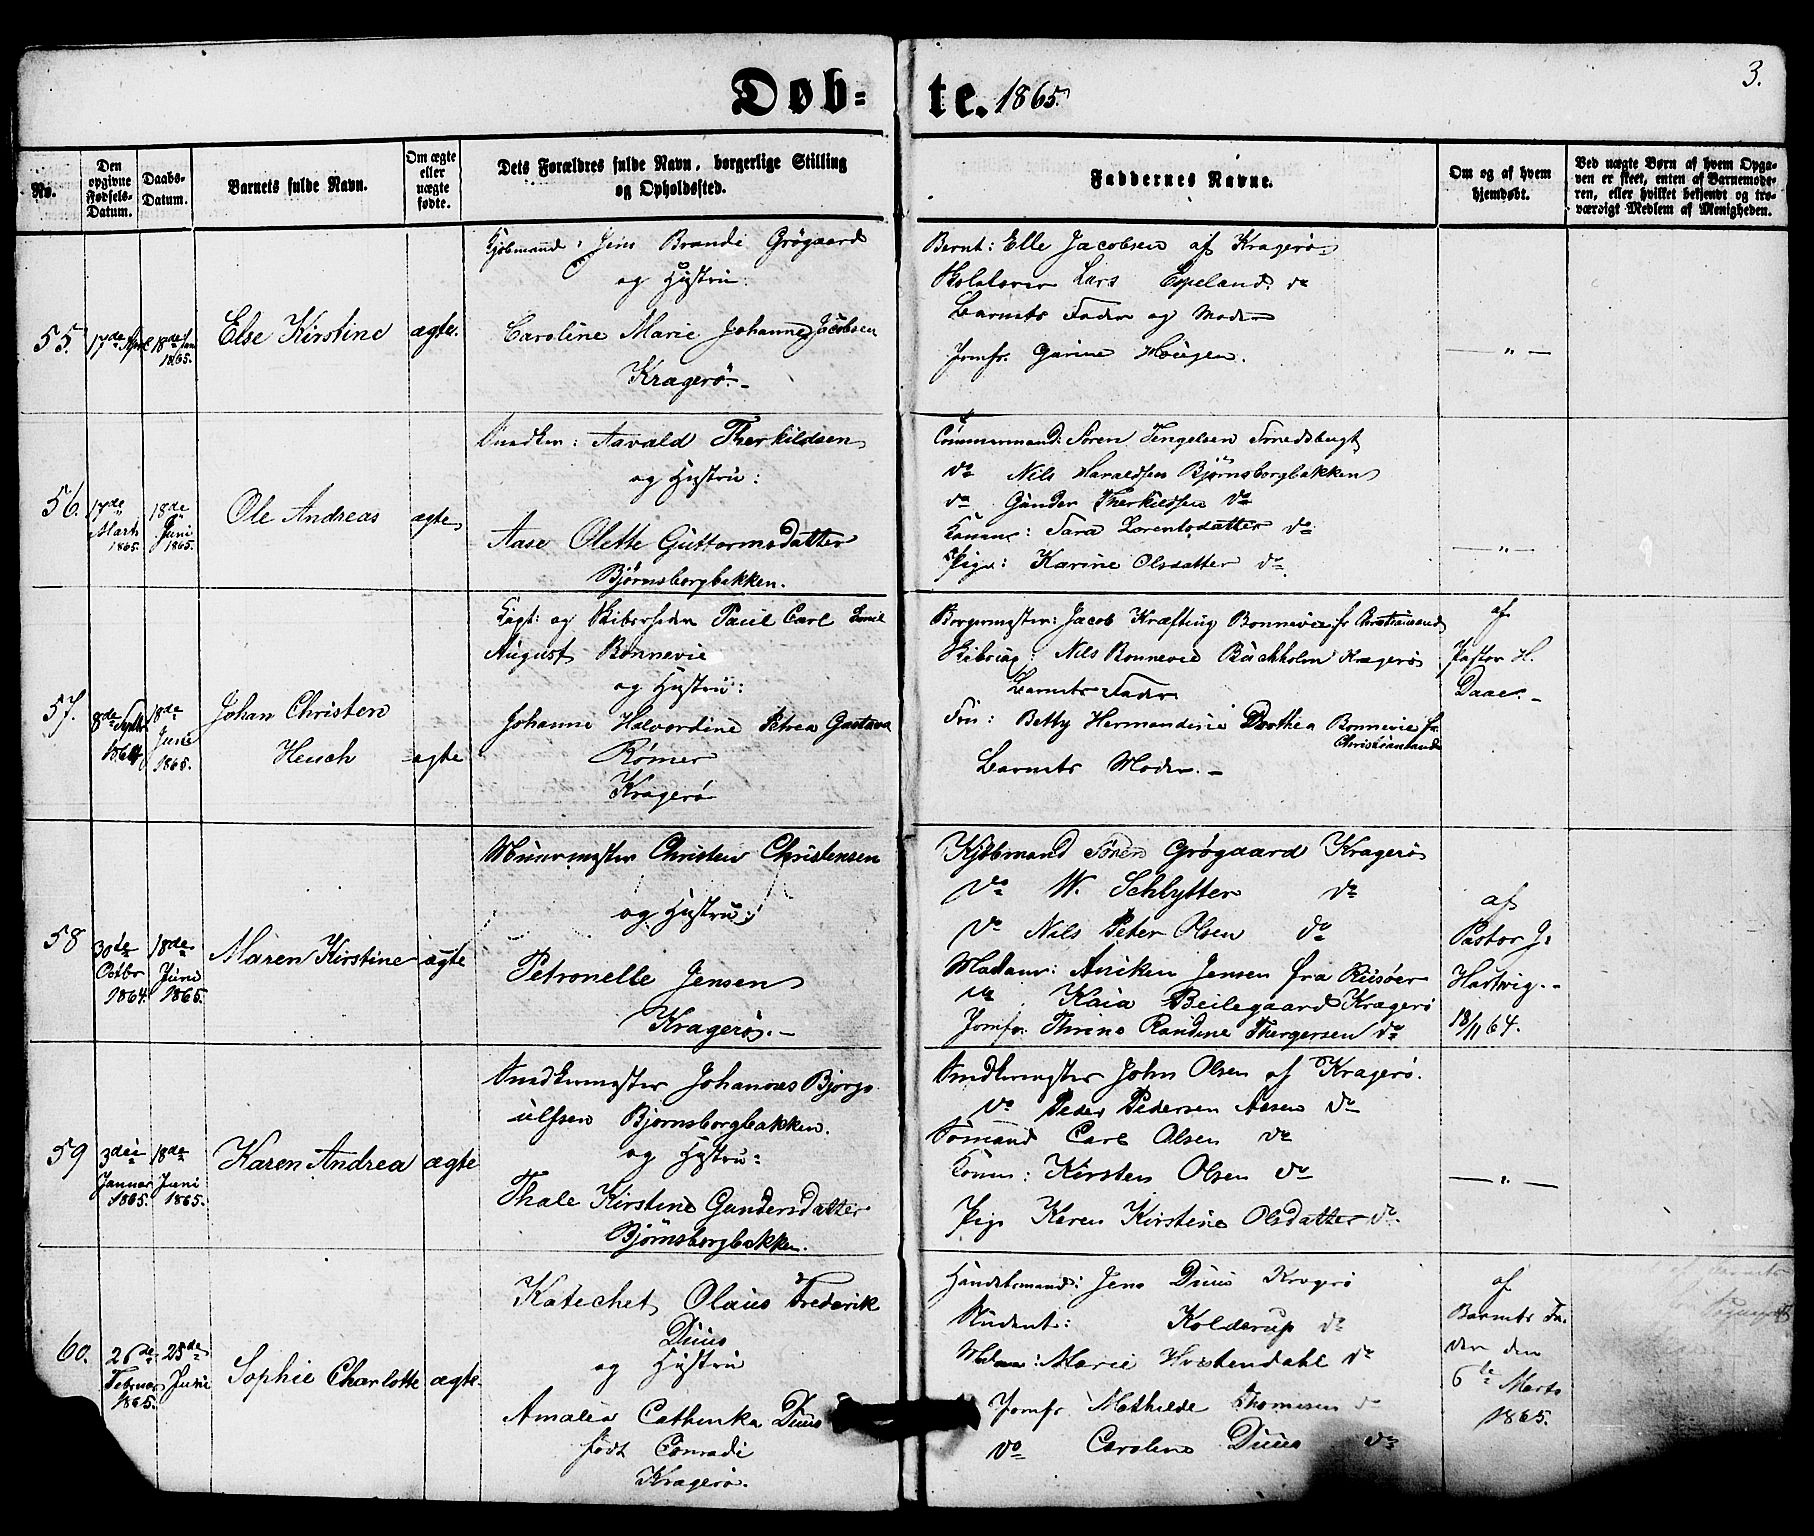 Døb-te. 1865.
3.
No.
Den opgivne Fødsels-Datum.
Daabs-Datum.
Barnets fulde Navn.
Om ægte eller uægte fødte.
Dets Forældres fulde Navn, borgerlige Stilling
og Opholdssted.
Faddernes Navne.
Om og af hvem
hjemdøbt.
Ved uægte Børn af hvem Opga-
ven er skeet, enten af Barnemode-
ren, eller hvilket bekjendt og tro-
værdigt Medlem af Menigheden.
55.
17de April
18de Juni
1865.
Else Kirstine
ægte.
Kjøbmand: Jens Brandi Grøgaard
og Hustru:
Caroline Marie Johanne Jacobsen
Kragerö.-
Bernt: Elle Jacobsen af Kragerø
Lars Espeland do
Barnets Fader og Moder
Jomfr. Gurine Hougen.
— " —
56.
17de
Marts
1865.
18de
Juni
1865.
Ole Andreas
ægte
Snedker: Aavald Therkildsen
og Hustru:
Aase Olette Guttormsdatter
Bjørnsborgbakken.
Tömmermand: Sören
do Nils Haraldsen Bjørnsborgbakken
do Gunder Therkildsen do
Konen: Sara Lorentsdatter do
Pige: Karine Olsdatter do
— " —
57.
8de Septbr
1864
18de
Juni
1865.
Johan Christen
Heuch
ægte
og Skibsreder Paul Carl Emil
August Bonnevie
og Hustru:
Johanne Halvordine Petrea Gustava
Rømer
Kragerö
Borgermester: Jacob Kræfting Bonnevie fr Christiansand
Nils Bonnevie Buchholm Kragerö
Barnets Fader
Frn: Betty Hermandine Dorthea Bonnevie fra
Christiansand
Barnets Moder.-
af
Pastor H.
Daae.-
58
30de
Octbr
1864.
18de
Juni
1865.
Maren Kirstine
ægte
Muurmester Christen Christensen
og Hustru:
Petronelle Jensen
Kragerö.-
Kjöbmand Sören Grøgaard Kragerö
do W. Schlytter do
do Nils Peter Olsen do
Madam: Aniken Jensen fra Riisöer
do Kaia Beilegaard Kragerö
Jomfr. Thrine Randine Thergersen do
af
Pastor J:
Hartvig.-
18/11 64.
59
3die
Januar
1865.
18de
Juni
1865.
Karen Andrea
ægte
Snedkermester Johannes Bjorgo
ulfsen Bjornsborgbakken.
og Hustru:
Thale Kirstine Gundersdatter
Bjørnsborgbakken.
Snedkermester John Olsen af Kragerö.
do Peder Pedersen Aasen do
Sömand Carl Olsen do
Konen: Kirsten Olsen do
Pige Karen Kirstine Olsdatter do
— " —
60.
26de
Februar
1865.
25de
Juni
Sophie Charlotte
ægte.
Katechet Olaus Frederik
Duus
og Hustru
Amalia Cathinka Duus
födt Conradi
Kragerö.
Handelsmand: Jens Duus Kragerö
Student: Kolderup do
Madam: Marie Hvistendahl do
Jomfr Mathilde Thomesen do
do Caroline Duus do
af
Barnets Fa-
der den
6te Marts
1865.